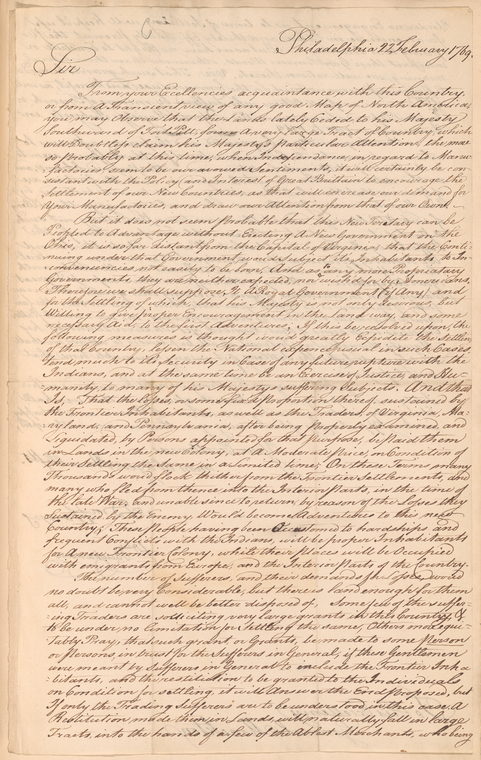 Philadelphia 22 February 1769.
Sir
From your Excellencies acquaintance with this Country,
or from a Transient view of any good Map of North America
you may Observe that the Lands lately Ceded to his Majesty
Southward of Fort Pitt forms a very large Tract of Country, which
will Doubtless claim his Majesty's particular Attention, the more
so probably at this time, when Independance, in regard to Manu-
factories seem to be our avowed Sentiments, it will certainly be con-
sistant with the Policy and Interest of Great Brittain to encourage the
Settlement of New Countries, as that will encrease our demand for
Your Manufactories, and draw our Attention from that of our Own.
But it does not seem Probable that this New Teretary can be
Peopled to Advantage without Erecting A New Government on the
Ohio, it is so far distant from the Capital of Virginia, that the Conti-
nuing under that Government would Subject its Inhabitants to In-
conveniences not easily to be bore, And as any more Propriatary
Governments, they are neither expected, nor wished for by Americans,
Therefore we shall suppose, it a Royal Government if Any, and
for the Settling of which, the King may be not only Desirous, but
Willing to give proper Encouragement in the land way, and some
necessary Aid, to the first Adventurers; If this be resolved upon, the
following measures is thought would greatly Expidite the Settleing
of that Country, lessen the National Expence usual in such Cases,
and work to its Security in Case of any future rupture with the
Indians, and at the same time be an Exercise of Justice, and Hu-
manity to many of his Majesty's suffering Subjects, And that
Is, That the losses, or some fixed proportion thereof, sustained by
the Frontier Inhabitants, as well as the Traders of Virginia, Ma-
ryland, and Pennsylvania, after being properly examined, and
Liquidated, by Persons appointed for that purpose, be paid them
in Lands in the new Colony, at A Moderate price on Condition of
their Settling the Same in a limited time; On these Terms many
Thousands would flock thither from the Frontier Settlements, and
many who fled from thence into the Interior Parts, in the time of
the late War, and unable since to return by reason of the Losses they
Sustained by the Enemy Would become Adventurers to this new
Country; These People having been Accustomed to hardships and
frequent Conflicts with the Indians, will be proper Inhabitants
for A new Frontier Colony, while their places will be Occupied
with emigrants from Europe, and the Interior Parts of the Country.
The number of Sufferers, and their demands of the losses would
no doubt be, very Considerable, but there is land enough for them
all, and cannot well be better disposed of, Some few of the suffer-
ing Traders are solliciting very large grants in this Country, &
to be under no limitation for Settling the same; Others more equi-
tably Pray, that such grant or Grants, be made to some Person
or Persons in trust for the Sufferers in General, if these Gentlemen
were meant by Sufferers in General to include the Frontier Inha-
bitants, and the restitution to be granted to the Individuals
on Condition for settling, it will Answer the End proposed, but
If only the Trading Sufferers are to be understood, in this case, A
Restitution made them in Lands, will naturally fall in large
Tracts, into the hands of a few of the Ablest Merchants, who being